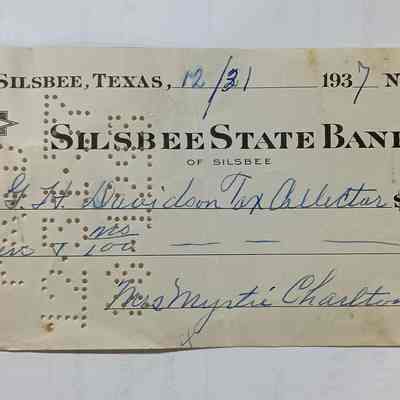 SILSBEE, TEXAS, 12/31 1937 N
SILSBEE STATE BANK
OF SILSBEE
Davidson Tax Collector $
& no/100
Mrs Myrtie Charlton